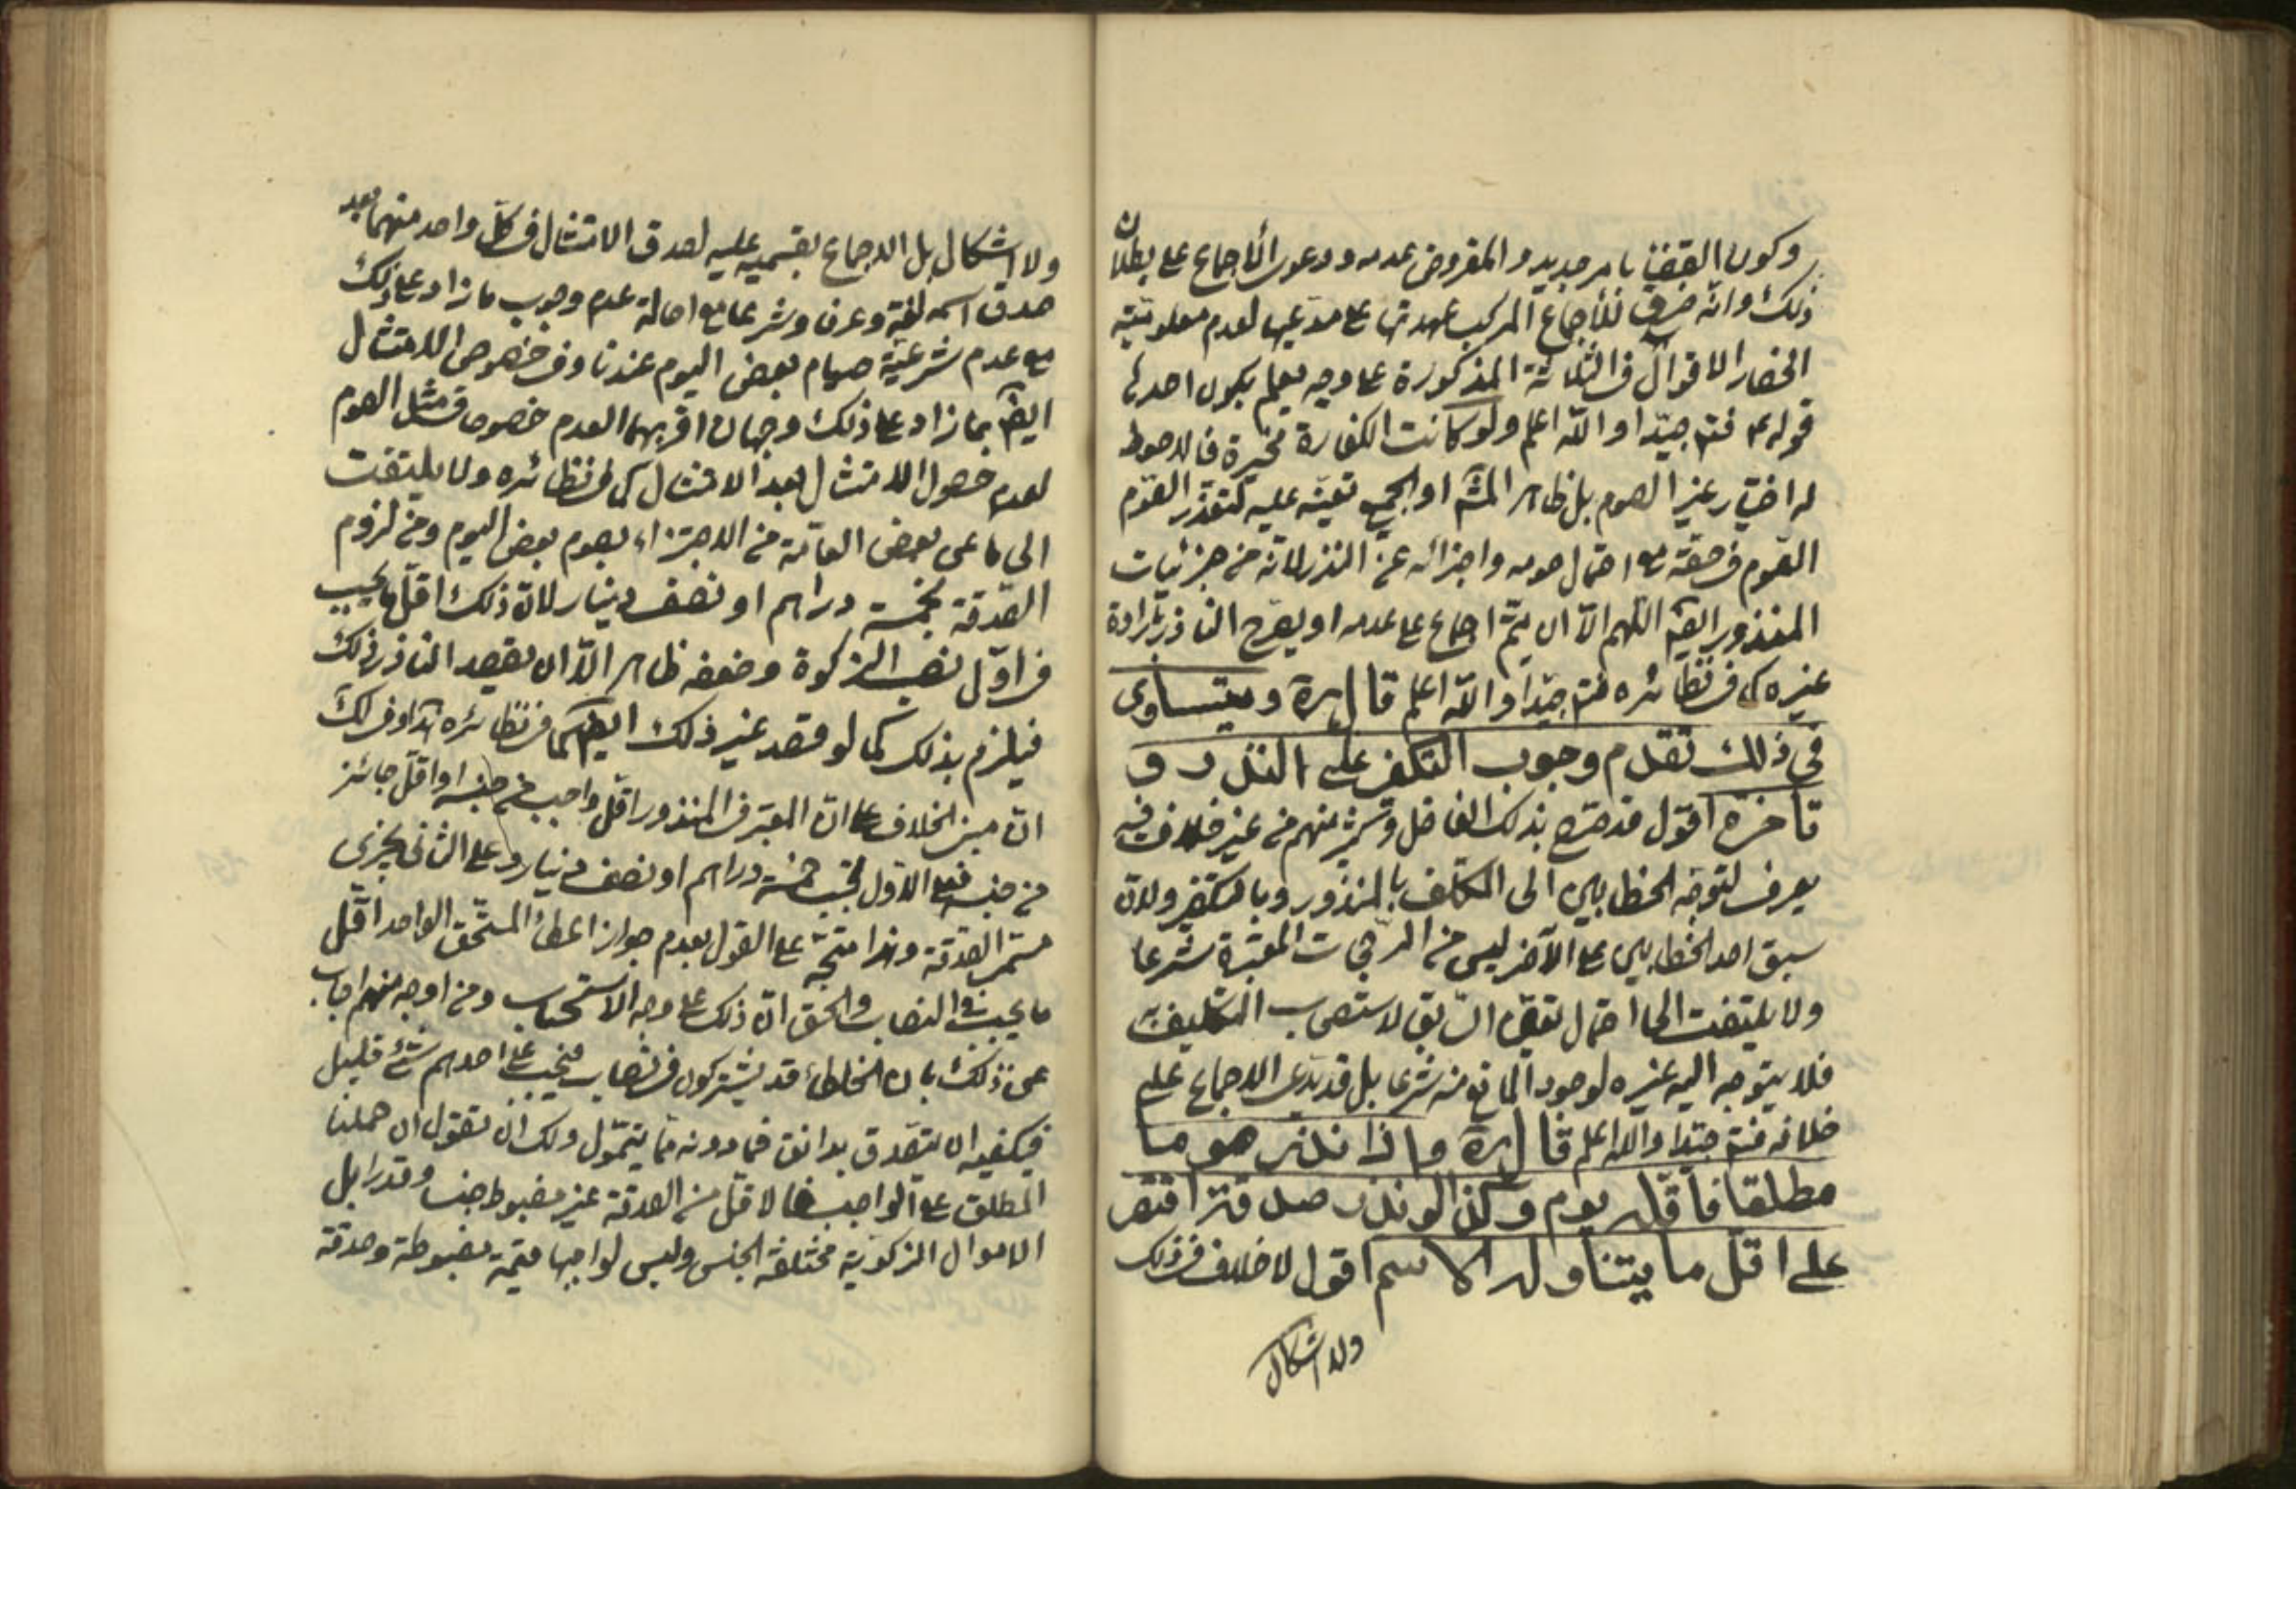 وكون القضاء بامر جديد والمفروض عدمه ودعوى الاجماع على بطلان
ذلك وانه خرق للاجماع المركب عهدتها على مدعيها لعدم معلومية
انحصار الاقوال في الثلاثة المذكورة على وجه يعلم بكون احدها
قوله ع فتم جيدا والله اعلم ولو كانت الكفارة مخيرة فالاحوط
له اختيار غير الصوم بل ظاهر او الجميع تعينه عليه لتعذر الصوم
الصوم في حقه مع احتمال صومه واجزائه عن النذر لانه من جزئيات
المنذور ايضا اللهم الا ان يتم اجماع على عدمه او يصرح الناذر بارادة
غيره كما في نظائره فتم جيدا والله اعلم قال ره ويتساوى
في ذلك تقدم وجوب التكفير على النذر و
تأخره اقول قد صرح بذلك الفاضل وكثير منهم من غير خلاف فيه
يعرف لتوجه الخطابين الى المكلف بالمنذور وبالتكفير ولان
سبق احد الخطابين على الآخر ليس من المرجحات المعتبرة شرعا
ولا يلتفت الى احتمال تقديم السابق لاستصحاب التكليف
فلا يتوجه اليه غيره لوجود المانع منه شرعا بل قد يدعى الاجماع على
خلافه فتم جيدا والله اعلم قال ره واذا نذر صوما
مطلقا فأقله يوم وكذا لو نذر صدقة اقتصر
على اقل ما يتناوله الاسم اقول لا خلاف في ذلك
ولا اشكال
ولا اشكال بل الاجماع بقسميه عليه لصدق الامتثال في كل واحد منهما بعد
صدق اسمه لغة وعرفا وشرعا مع اصالة عدم وجوب ما زاد على ذلك
مع عدم شرعية صيام بعض اليوم عندنا وفي خصوص الامتثال
ايضا بما زاد على ذلك وجهان اقربهما العدم خصوصا في مثل الصوم
لعدم حصول الامتثال بعد الامتثال كما في نظائره ولا يلتفت
الى ما عن بعض العامة من الاجتزاء بصوم بعض اليوم ومن لزوم
الصدقة بخمسة دراهم او نصف دينار لان ذلك اقل ما يجب
في اول نصب الزكوة وضعفه ظاهر الا ان يقصد الناذر ذلك
فيلزم بذلك كما لو قصد غير ذلك ايضا كما في نظائره هذا وفي لك
ان مبنى الخلاف على ان المعتبر في المنذور اقل واجب من جنسه او اقل جائز
من جنسه فعلى الاول تجب خمسة دراهم او نصف دينار وعلى الثاني يجزى
مسمى الصدقة وهذا متجه على القول بعدم جواز اعطاء المستحق الواحد اقل
ما يجب في النصاب والحق ان ذلك على وجه الاستحباب ومن اوجه منهم اجاب
عن ذلك بان الخلطاء قد يشتركون في نصاب فيجب على احدهم شئ قليل
فيكفيه ان يتصدق بدانق فما دونه مما يتمول ولك ان تقول ان حملنا
المطلق على الواجب فالاقل من الصدقة غير مضبوط جنسا وقدرا بل
الاموال الزكوية مختلفة الجنس وليس لواجبها قيمة مضبوطة وصدقة